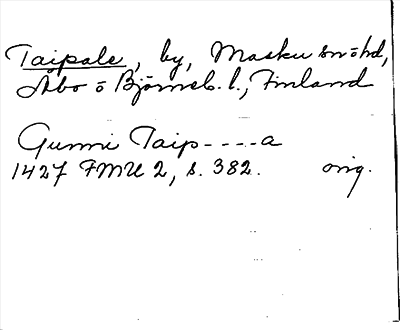 Taipale, by, Masku sn o hd,
Åbo o Björneb. l., Finland
Gunni Taip-----a
1427 FMU 2, s. 382. orig.